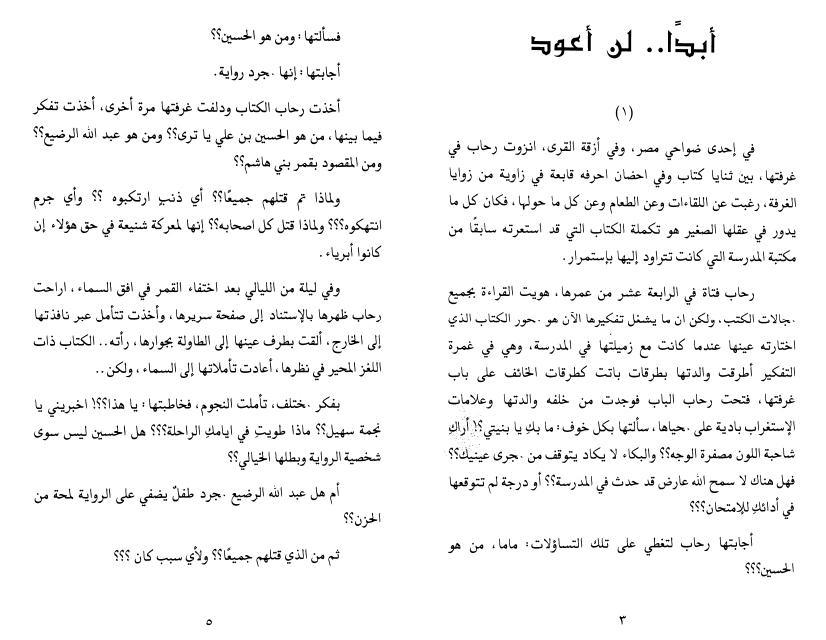 أبدًا.. لن أعود
(١)
في إحدى ضواحي مصر، وفي أزقة القرى، انزوت رحاب في
غرفتها، بين ثنايا كتاب وفي احضان احرفه قابعة في زاوية من زوايا
الغرفة، رغبت عن اللقاءات وعن الطعام وعن كل ما حولها، فكان كل ما
يدور في عقلها الصغير هو تكملة الكتاب التي قد استعرته سابقًا من
مكتبة المدرسة التي كانت تتراود إليها بإستمرار.
رحاب فتاة في الرابعة عشر من عمرها، هويت القراءة بجميع
مجالات الكتب، ولكن ان ما يشغل تفكيرها الآن هو محور الكتاب الذي
اختارته عينها عندما كانت مع زميلتها في المدرسة، وهي في غمرة
التفكير أطرقت والدتها بطرقات باتت كطرقات الخائف على باب
غرفتها، فتحت رحاب الباب فوجدت من خلفه والدتها وعلامات
الإستغراب بادية على محياها، سألتها بكل خوف: ما بكِ يا بنيتي؟! أراكِ
شاحبة اللون مصفرة الوجه؟؟ والبكاء لا يكاد يتوقف من مجرى عينيك؟؟
فهل هناك لا سمح الله عارض قد حدث في المدرسة؟؟ أو درجة لم تتوقعها
في أدائكِ للإمتحان؟؟؟
أجابتها رحاب لتغطي على تلك التساؤلات: ماما، من هو
الحسين؟؟؟
٣
فسألتها: ومن هو الحسين؟؟
أجابتها: إنها مجرد رواية.
أخذت رحاب الكتاب ودلفت غرفتها مرة أخرى، أخذت تفكر
فيما بينها، من هو الحسين بن علي يا ترى؟؟ ومن هو عبد الله الرضيع؟؟
ومن المقصود بقمر بني هاشم؟؟
ولماذا تم قتلهم جميعًا؟؟ أي ذنبٍ ارتكبوه ؟؟ وأي جرم
انتهكوه؟؟؟ ولماذا قتل كل اصحابه؟؟ إنها لمعركة شنيعة في حق هؤلاء إن
كانوا أبرياء.
وفي ليلة من الليالي بعد اختفاء القمر في افق السماء، اراحت
رحاب ظهرها بالإستناد إلى صفحة سريرها، وأخذت تتأمل عبر نافذتها
إلى الخارج، ألقت بطرف عينها إلى الطاولة بجوارها، رأته.. الكتاب ذات
اللغز المحير في نظرها، أعادت تأملاتها إلى السماء، ولكن..
بفكر مختلف، تأملت النجوم، فخاطبتها: يا هذا؟؟! اخبريني يا
نجمة سهيل؟؟ ماذا طويتِ في ايامكِ الراحلة؟؟؟ هل الحسين ليس سوى
شخصية الرواية وبطلها الخيالي؟؟
أم هل عبد الله الرضيع مجرد طفلٌ يضفي على الرواية لمحة من
الحزن؟؟
ثم من الذي قتلهم جميعًا؟؟ ولأي سبب كان ؟؟؟
٥